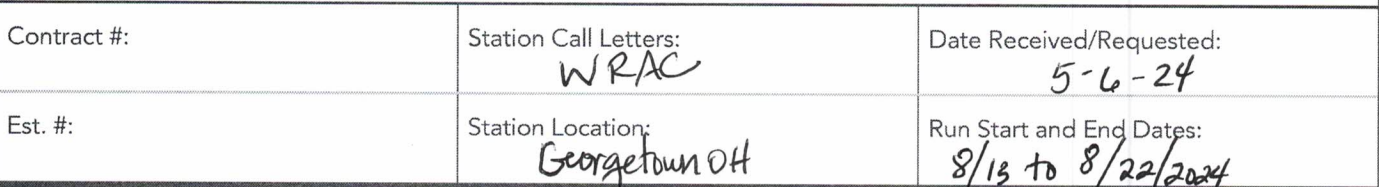 Contract #:
Station Call Letters:
WRAC
Date Received/Requested:
5-6-24
Est. #:
Station Location:
Georgetown OH
Run Start and End Dates:
8/13 to 8/22/2024